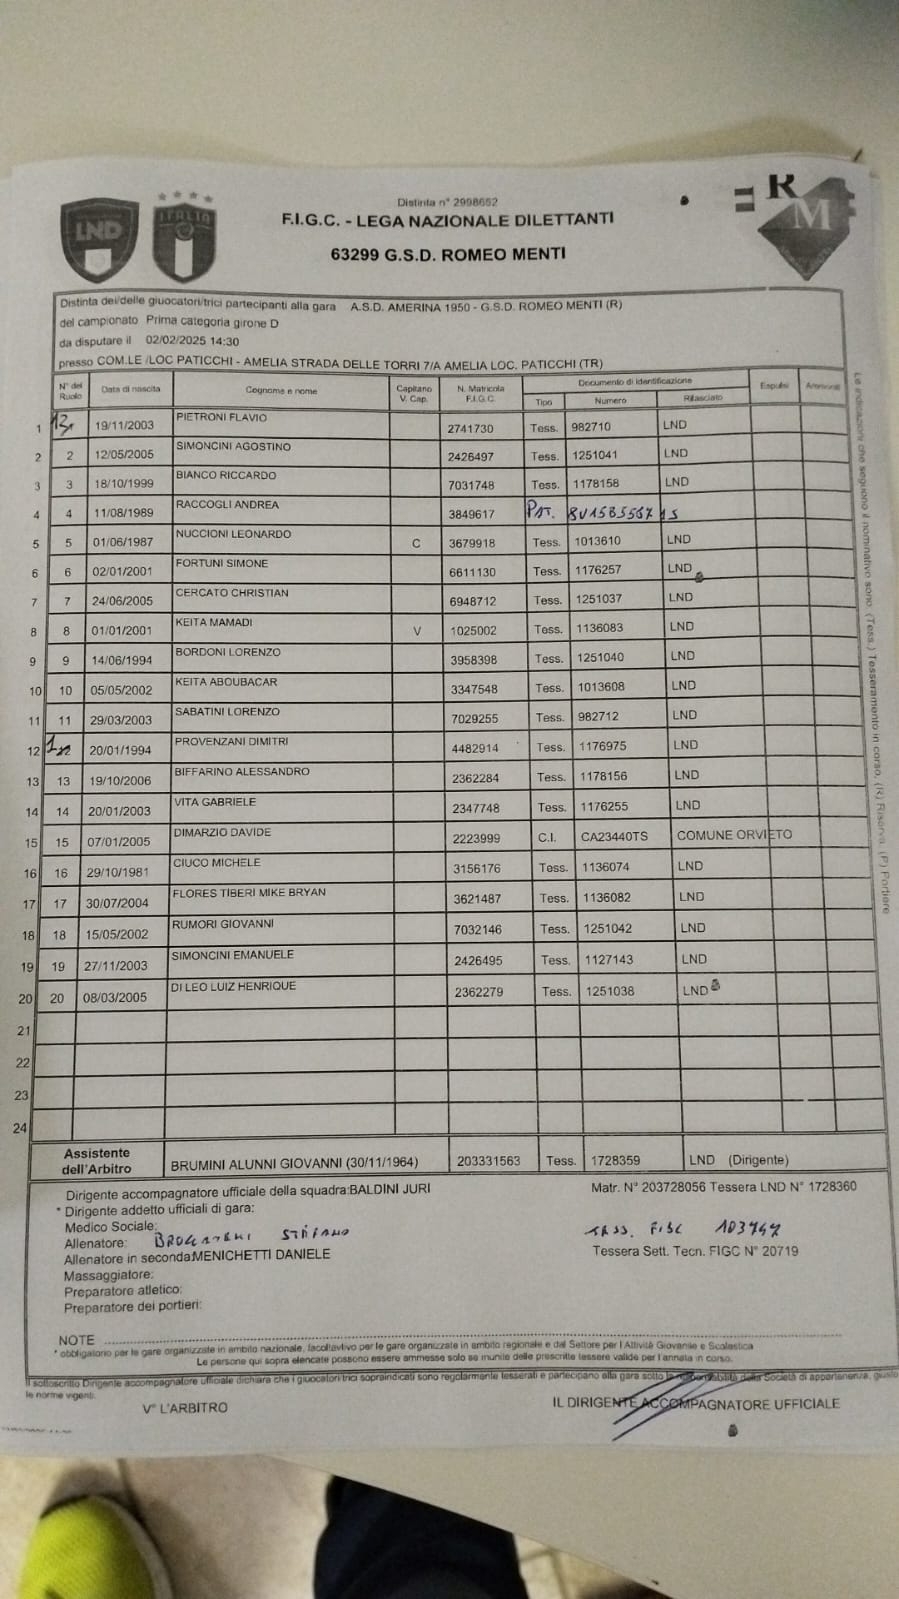 LND
ITALIA
R
M
Distinta n° 2998652
F.I.G.C. - LEGA NAZIONALE DILETTANTI
63299 G.S.D. ROMEO MENTI
Distinta dei/delle giuocatori/trici partecipanti alla gara A.S.D. AMERINA 1950 - G.S.D. ROMEO MENTI (R)
del campionato Prima categoria girone D
da disputare il 02/02/2025 14:30
presso COM.LE /LOC PATICCHI - AMELIA STRADA DELLE TORRI 7/A AMELIA LOC. PATICCHI (TR)
N° del Ruolo Data di nascita Cognome e nome Capitano V. Cap. N. Matricola F.I.G.C. Documento di identificazione Espulsi Ammoniti
Tipo Numero Rilasciato
1 13 19/11/2003 PIETRONI FLAVIO 2741730 Tess. 982710 LND
2 2 12/05/2005 SIMONCINI AGOSTINO 2426497 Tess. 1251041 LND
3 3 18/10/1999 BIANCO RICCARDO 7031748 Tess. 1178158 LND
4 4 11/08/1989 RACCOGLI ANDREA 3849617 PAT.
5 5 01/06/1987 NUCCIONI LEONARDO C 3679918 Tess. 1013610 LND
6 6 02/01/2001 FORTUNI SIMONE 6611130 Tess. 1176257 LND
7 7 24/06/2005 CERCATO CHRISTIAN 6948712 Tess. 1251037 LND
8 8 01/01/2001 KEITA MAMADI V 1025002 Tess. 1136083 LND
9 9 14/06/1994 BORDONI LORENZO 3958398 Tess. 1251040 LND
10 10 05/05/2002 KEITA ABOUBACAR 3347548 Tess. 1013608 LND
11 11 29/03/2003 SABATINI LORENZO 7029255 Tess. 982712 LND
12 1 20/01/1994 PROVENZANI DIMITRI 4482914 Tess. 1176975 LND
13 13 19/10/2006 BIFFARINO ALESSANDRO 2362284 Tess. 1178156 LND
14 14 20/01/2003 VITA GABRIELE 2347748 Tess. 1176255 LND
15 15 07/01/2005 DIMARZIO DAVIDE 2223999 C.I. CA23440TS COMUNE ORVIETO
16 16 29/10/1981 CIUCO MICHELE 3156176 Tess. 1136074 LND
17 17 30/07/2004 FLORES TIBERI MIKE BRYAN 3621487 Tess. 1136082 LND
18 18 15/05/2002 RUMORI GIOVANNI 7032146 Tess. 1251042 LND
19 19 27/11/2003 SIMONCINI EMANUELE 2426495 Tess. 1127143 LND
20 20 08/03/2005 DI LEO LUIZ HENRIQUE 2362279 Tess. 1251038 LND
21
22
23
24
Assistente dell'Arbitro BRUMINI ALUNNI GIOVANNI (30/11/1964) 203331563 Tess. 1728359 LND (Dirigente)
Dirigente accompagnatore ufficiale della squadra:BALDINI JURI Matr. N° 203728056 Tessera LND N° 1728360
* Dirigente addetto ufficiali di gara:
Medico Sociale:
Allenatore: STEFANO TESS. FIGC 103747
Allenatore in seconda:MENICHETTI DANIELE Tessera Sett. Tecn. FIGC N° 20719
Massaggiatore:
Preparatore atletico:
Preparatore dei portieri:
NOTE
* obbligatorio per le gare organizzate in ambito nazionale, facoltativo per le gare organizzate in ambito regionale e dal Settore per l'Attività Giovanile e Scolastica
Le persone qui sopra elencate possono essere ammesse solo se munite delle prescritte tessere valide per l'annata in corso.
Il sottoscritto Dirigente accompagnatore ufficiale dichiara che i giuocatori/trici sopraindicati sono regolarmente tesserati e partecipano alla gara sotto la responsabilità della Società di appartenenza, giusto
le norme vigenti.
V° L'ARBITRO IL DIRIGENTE ACCOMPAGNATORE UFFICIALE
Le indicazioni che seguono il nominativo sono: (Tess.) Tesseramento in corso, (R) Riserva, (P) Portiere